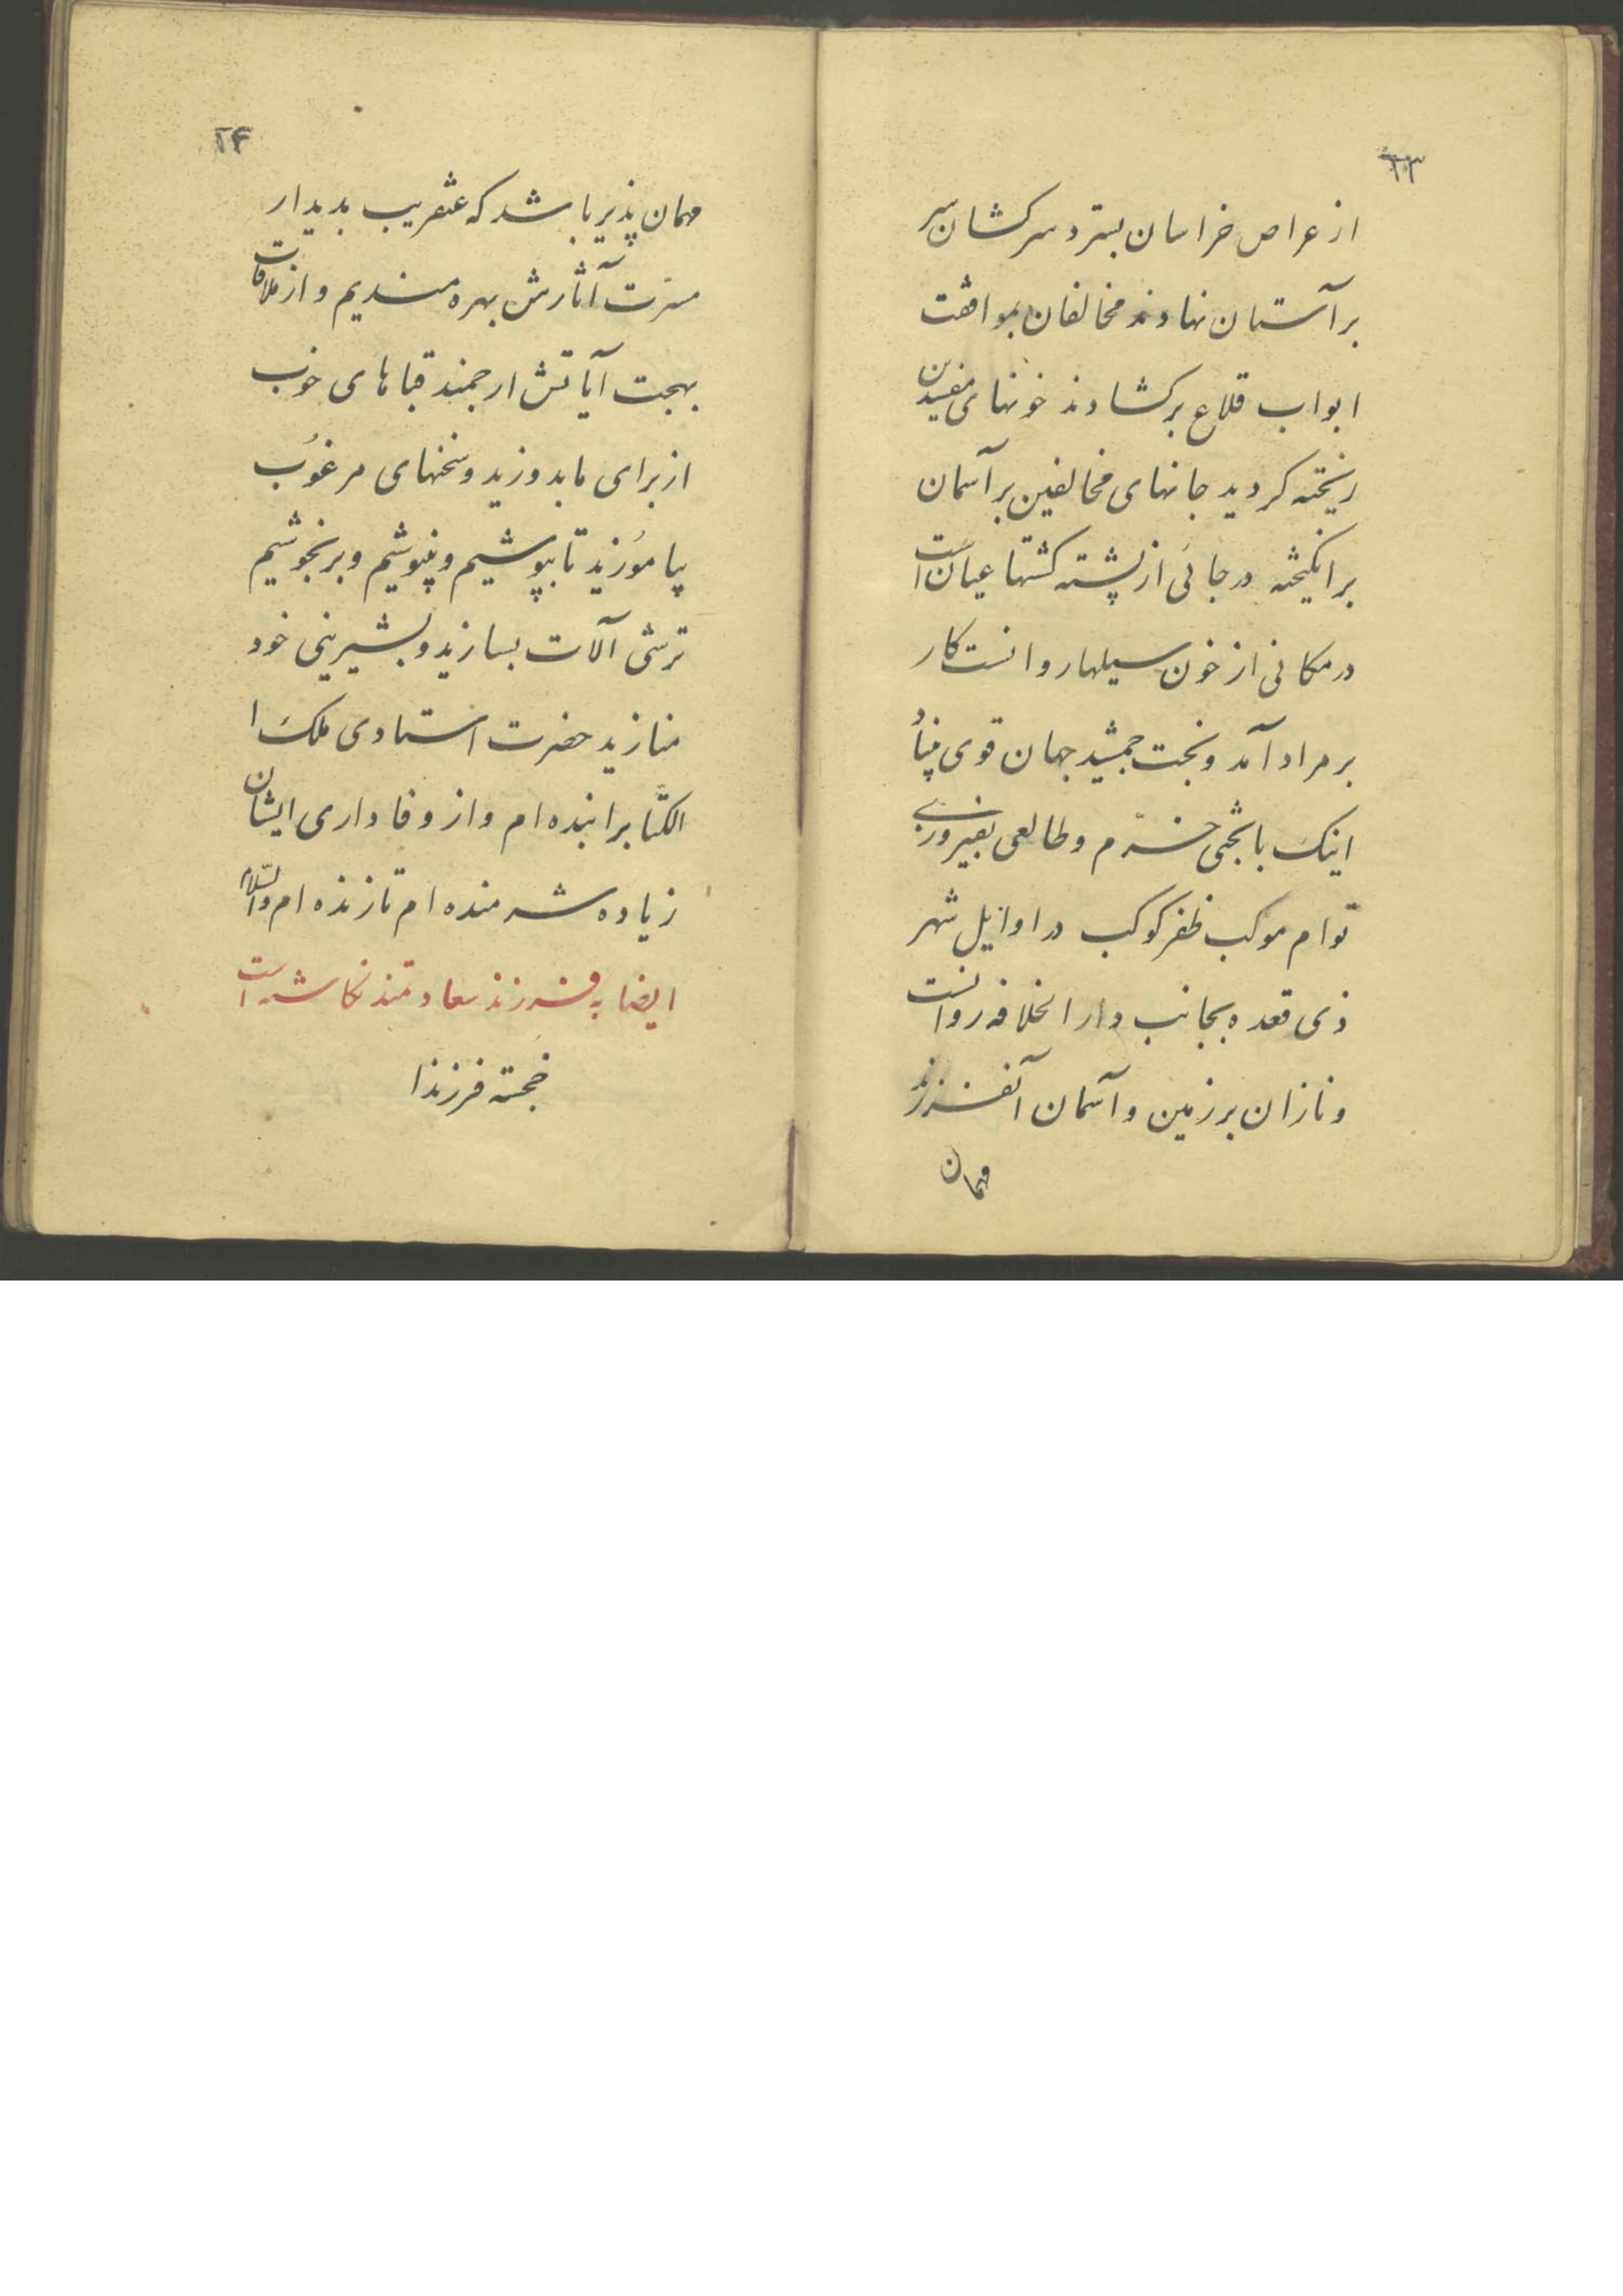 ۲۳
از عراص خراسان بسترد سرکشان سر
بر آستان نهادند مخالفان بموافقت
ابواب قلاع برکشادند خونهای مفسدین
ریخته کردید جانهای مخالفین بر آسمان
برانکیخته در جائی از پشته کشتها عیان است
در مکانی از خون سیلها روانست کار
بر مراد آمد و بخت جمشید جهان قوی بنیاد
اینک با بختی خرّم و طالعی بفیروزی
توام موکب ظفر کوکب در اوایل شهر
ذی قعده بجانب دار الخلافه روانست
و نازان بر زمین و آسمان آنفرزند
مهمان
۲۴
مهمان پذیر باشد که عنقریب بدیدار
مسرّت آثارش بهره مندیم و از ملاقات
بهجت آیاتش ارجمند قباهای خوب
از برای ما بدوزید و سخنهای مرغوب
بیاموزید تا بپوشیم و بنیوشیم و برنجوشیم
ترشی آلات بسازید و بشیرینی خود
منازید حضرت استادی ملک ا
الکتّابرا بنده ام و از وفاداری ایشان
زیاده شرمنده ام تا زنده ام والسّلام
ایضا به فرزند سعادتمند نکاشته است
خجسته فرزندا